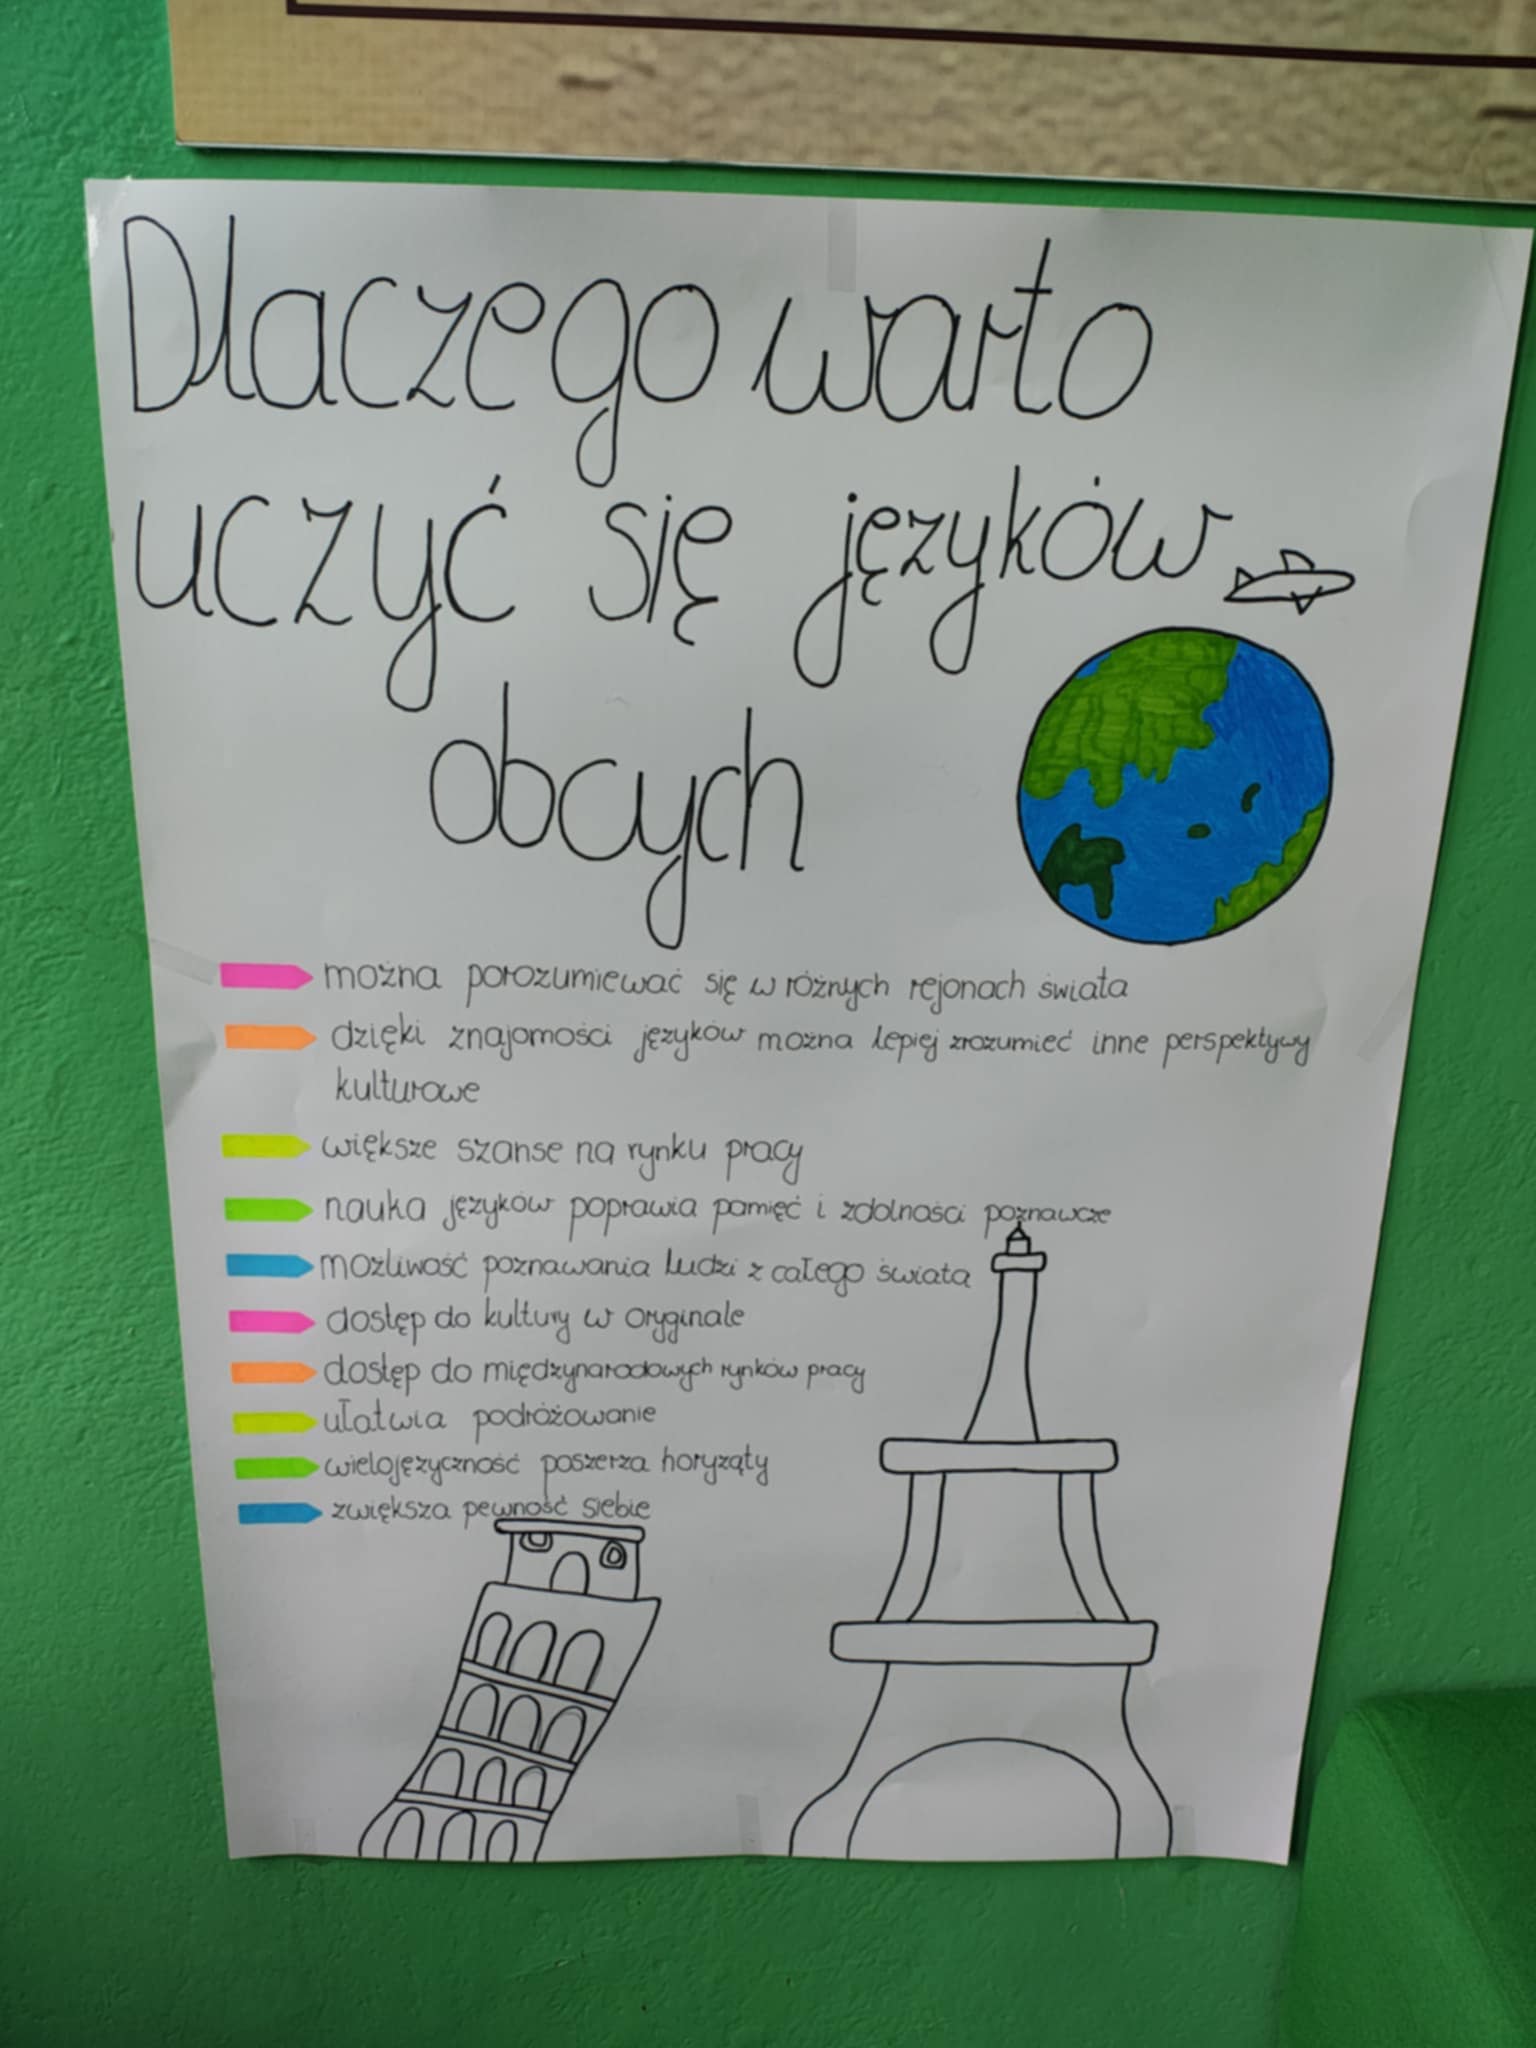 Dlaczego warto
uczyć się języków
obcych
można porozumiewać się w różnych rejonach świata
dzięki znajomości języków można lepiej zrozumieć inne perspektywy
kulturowe
większe szanse na rynku pracy
nauka języków poprawia pamięć i zdolności poznawcze
możliwość poznawania ludzi z całego świata
dostęp do kultury w oryginale
dostęp do międzynarodowych rynków pracy
ułatwia podróżowanie
wielojęzyczność poszerza horyząty
zwiększa pewność siebie